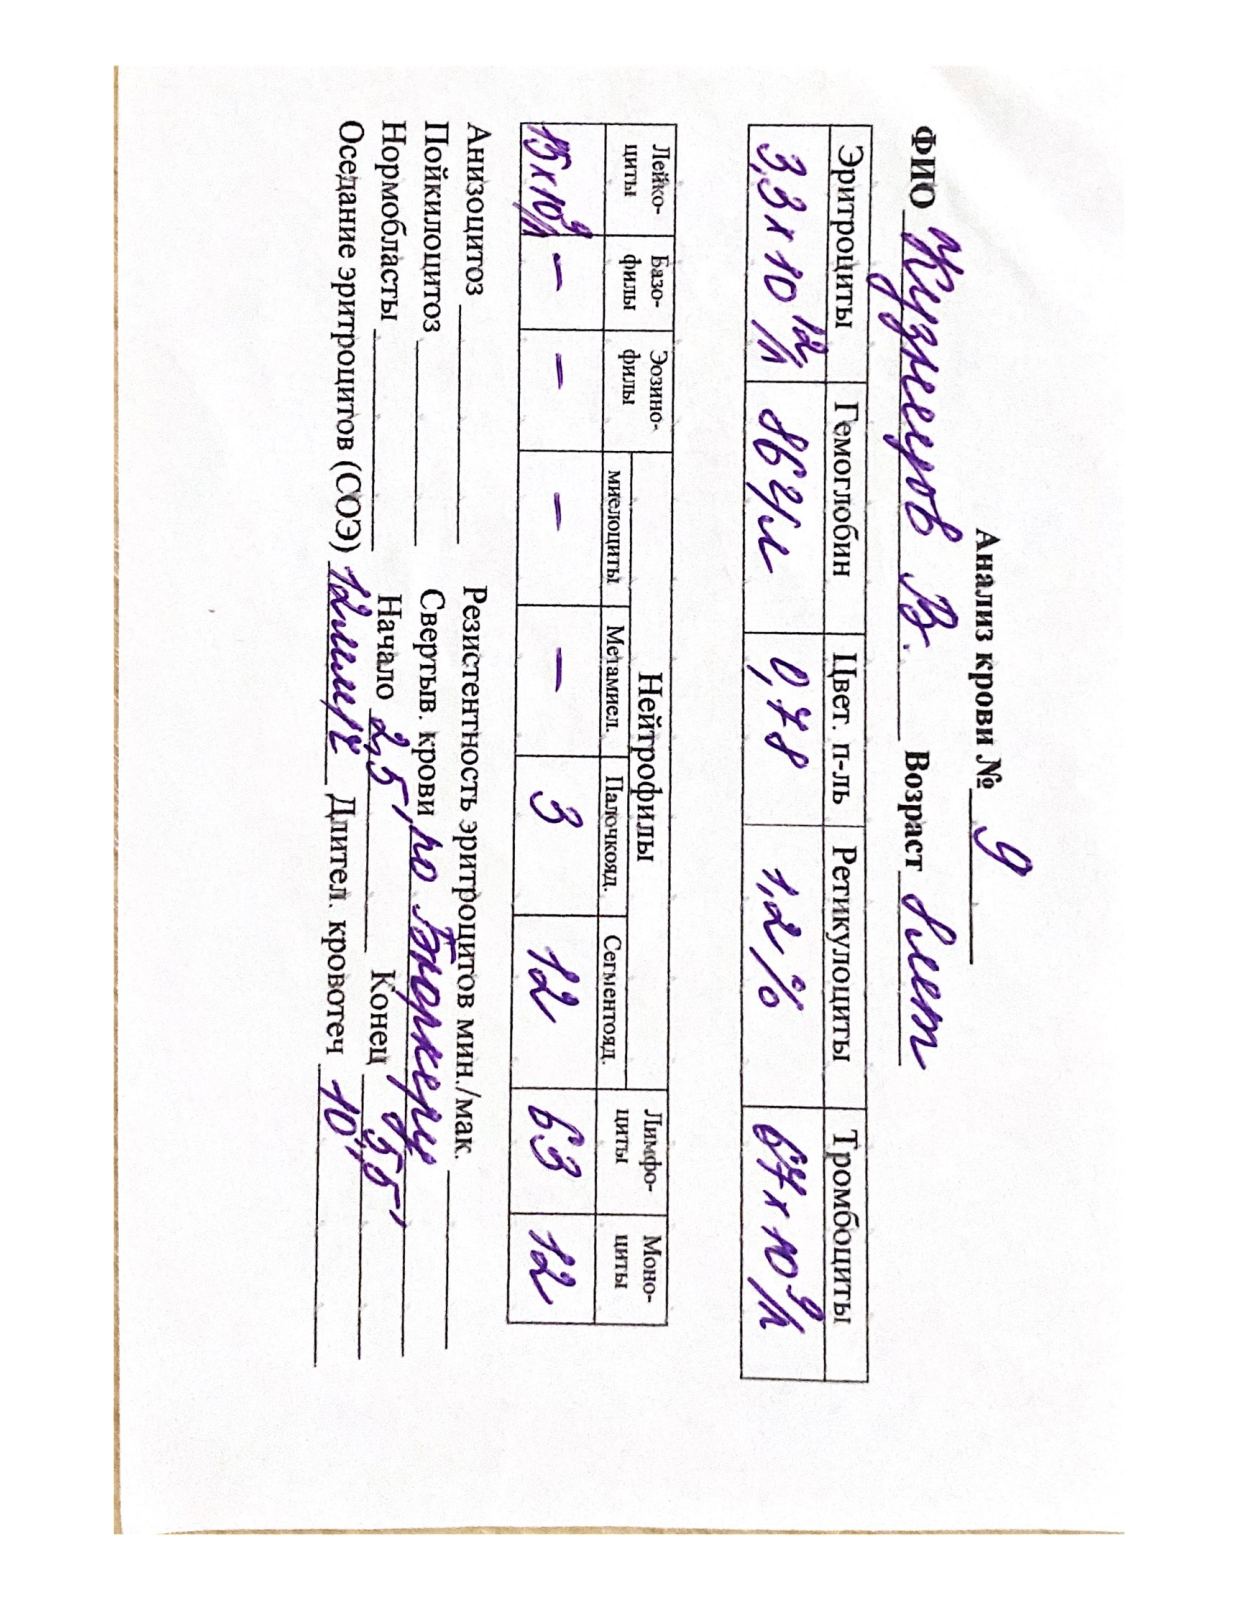 Анализ крови № 9
ФИО Кузнецов В. Возраст 8 лет
Эритроциты Гемоглобин Цвет. п-ль Ретикулоциты Тромбоциты
3,3 х 10¹²/л 86 г/л 0,78 1,2% 67 х 10⁹/л
Лейко-циты Базо-филы Эозино-филы Нейтрофилы Лимфо-циты Моно-циты
миелоциты Метамиел. Палочкояд. Сегментояд.
15 х 10⁹/л – – – – 3 12 63 12
Анизоцитоз Резистентность эритроцитов мин./мак.
Пойкилоцитоз Свертыв. крови по Бюркеру
Нормобласты Начало 2,5' Конец 5,5'
Оседание эритроцитов (СОЭ) 12 мм/ч Длител. кровотеч 10'